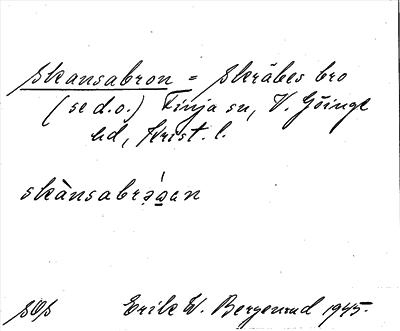 Skansabron = Skräbes bro
(se d.o.) Finja sn, V. Göinge
hd, Krist. l.
skànsabrə́ɑen
sOs Erik W. Bergenrud 1945.